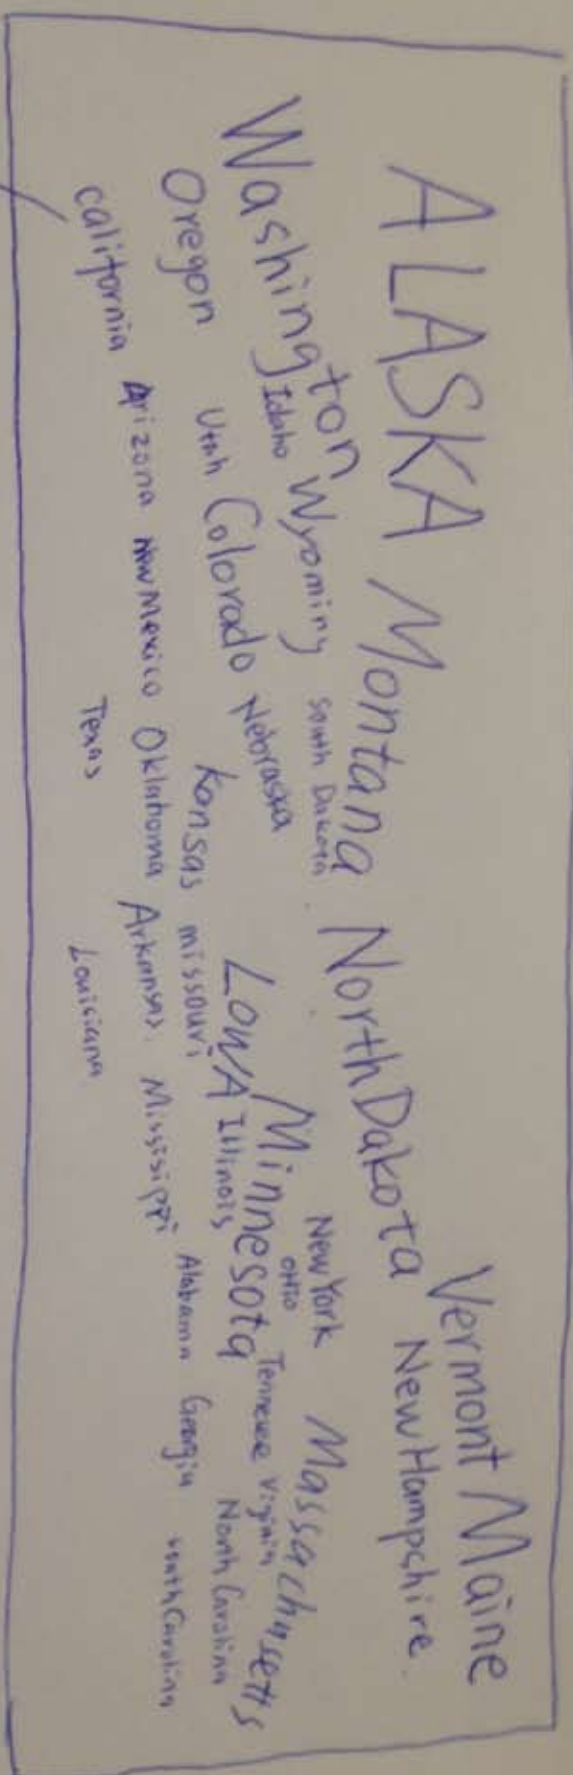 ALASKA Montana North Dakota Vermont Maine
New Hampshire.
Washington Idaho Wyoming South Dakota Minnesota New York Massachusetts
Oregon Utah Colorado Nebraska LowA Illinois OHIO Tennessee Virginia North Carolina
Kansas missouri
California Arizona New Mexico Oklahoma Arkansas. Mississippi Alabama Georgia South Carolina
Texas Louisiana